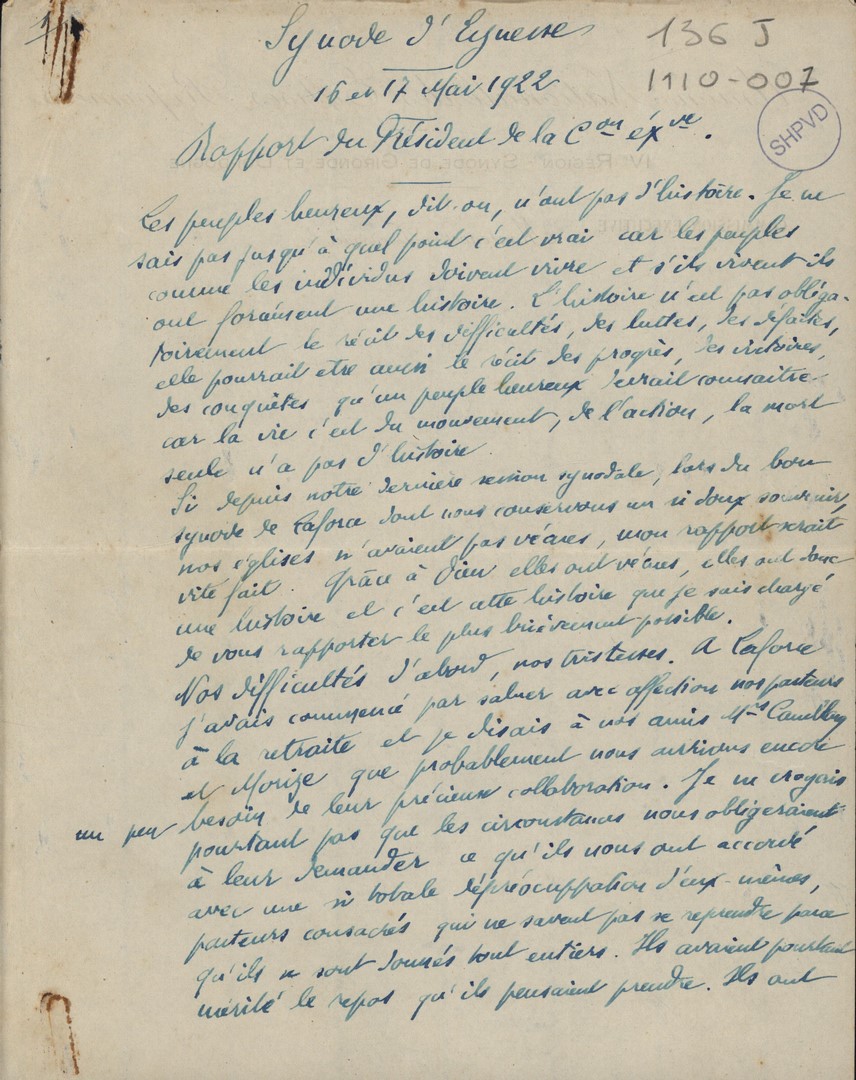 1
Synode d'Eynesse
136 J
1110-007
16 et 17 Mai 1922
SHPVD
Rapport du Président de la Con éxve.
Les peuples heureux, dit-on, n'ont pas d'histoire. Je ne
sais pas jusqu'à quel point c'est vrai car les peuples
comme les individus doivent vivre et s'ils vivent ils
ont forcément une histoire. L'histoire n'est pas obliga-
toirement le récit des difficultés, des luttes, des défaites,
elle pourrait etre aussi le récit des progrès, des victoires,
des conquêtes qu'un peuple heureux devrait connaitre
car la vie c'est du mouvement, de l'action, la mort
seule n'a pas d'histoire.
Si depuis notre dernière session synodale, lors du bon
synode de Laforce dont nous conservons un si doux souvenir,
nos églises n'avaient pas vécues, mon rapport serait
vite fait. Grâce à Dieu elles ont vécues, elles ont donc
une histoire et c'est cette histoire que je suis chargé
de vous rapporter le plus brièvement possible.
Nos difficultés d'abord, nos tristesses. A Laforce
j'avais commencé par saluer avec affection nos pasteurs
à la retraite et je disais à nos amis Mrs
et Morize que probablement nous aurions encore
un peu besoin de leur précieux collaboration. Je ne croyais
pourtant pas que les circonstances nous obligeraient
à leur demander ce qu'ils nous ont accordé
avec une si totale dépréocuppation d'eux-mêmes,
pasteurs consacrés qui ne savent pas se reprendre parce
qu'ils se sont donnés tout entiers. Ils avaient pourtant
mérité le repos qu'ils pensaient prendre. Ils ont